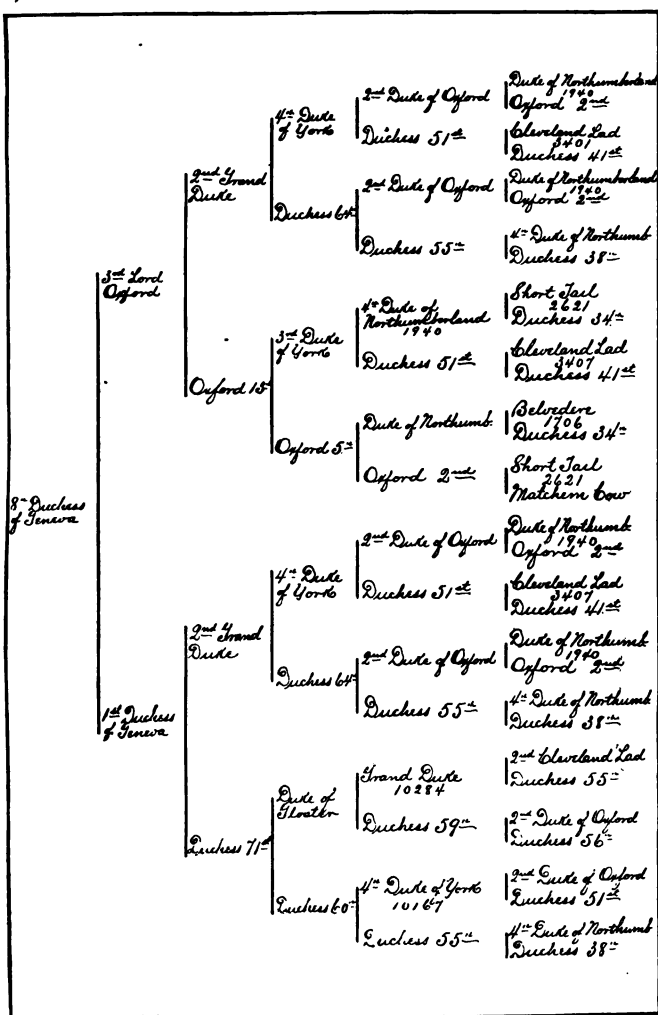 8th Duchess
of Geneva
3rd Lord
Oxford
1st Duchess
of Geneva
2nd Grand
Duke
Oxford 15th
2nd Grand
Duke
Duchess 71st
4th Duke
of York
Duchess 64th
3rd Duke
of York
Oxford 5th
4th Duke
of York
Duchess 64th
Duke of
Gloster
Duchess 60th
2nd Duke of Oxford
Duchess 51st
2nd Duke of Oxford
Duchess 55th
4th Duke of
Northumberland
1940
Duchess 51st
Duke of Northumb.
Oxford 2nd
2nd Duke of Oxford
Duchess 51st
2nd Duke of Oxford
Duchess 55th
Grand Duke
10284
Duchess 59th
4th Duke of York
10167
Duchess 55th
Duke of Northumberland
1940
Oxford 2nd
Cleveland Lad
3401
Duchess 41st
Duke of Northumberland
1940
Oxford 2nd
4th Duke of Northumb
Duchess 38th
Short Tail
2621
Duchess 34th
Cleveland Lad
3407
Duchess 41st
Belvedere
1706
Duchess 34th
Short Tail
2621
Matchem Cow
Duke of Northumb
1940
Oxford 2nd
Cleveland Lad
3407
Duchess 41st
Duke of Northumb
1940
Oxford 2nd
4th Duke of Northumb
Duchess 38th
2nd Cleveland Lad
Duchess 55th
2nd Duke of Oxford
Duchess 56th
2nd Duke of Oxford
Duchess 51st
4th Duke of Northumb
Duchess 38th